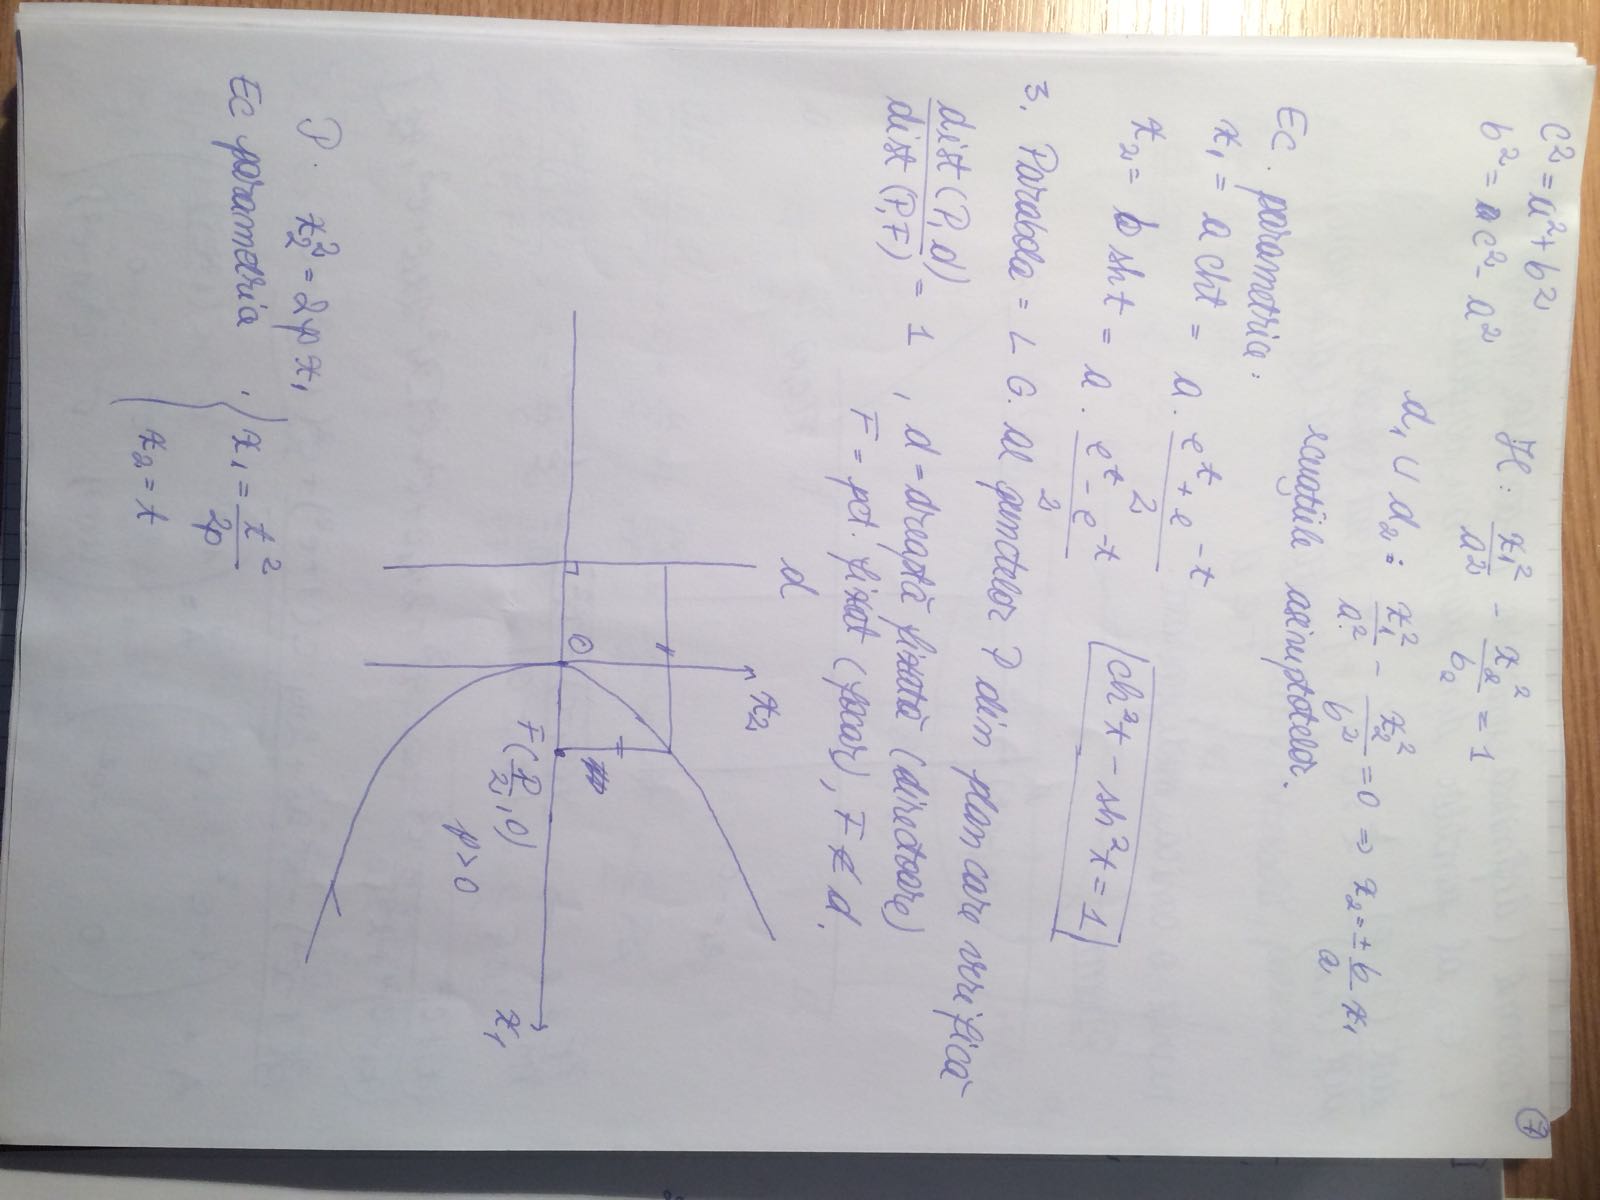 7
c² = a² + b²
b² = c² - a²
H: x₁²/a² - x₂²/b² = 1
d₁ ∪ d₂: x₁²/a² - x₂²/b² = 0 ⇒ x₂ = ± b/a x₁
ecuațiile asimptotelor.
Ec. parametrice:
x₁ = a ch t = a · (e^t + e^-t)/2
x₂ = b sh t = a · (e^t - e^-t)/2
ch²t - sh²t = 1
3. Parabola = L G. al punctelor P din plan care verifică
dist(P,d)/dist(P,F) = 1, d = dreaptă fixată (directoare)
F = pct. fixat (focar), F ∉ d.
d
x₂
O
F(p/2, 0)
p > 0
x₁
P. x₂² = 2p x₁
Ec parametrice, { x₁ = t²/2p
x₂ = t